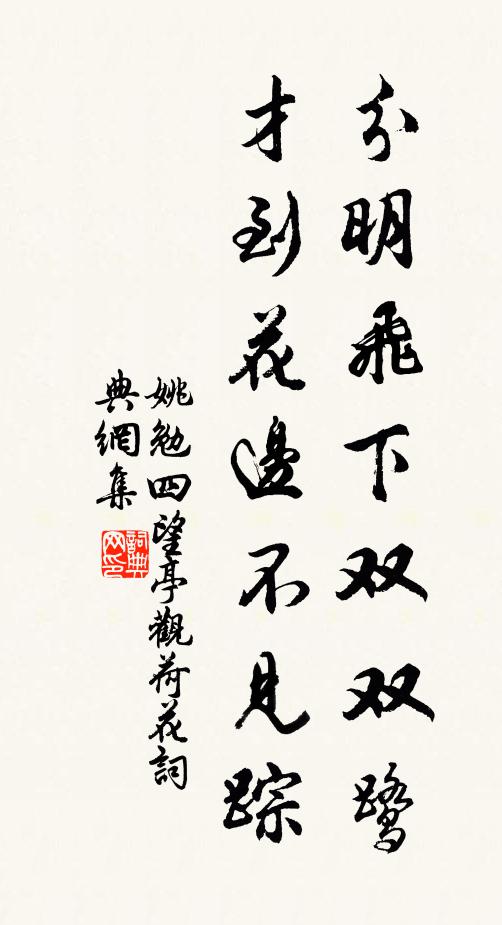 分明飛下双双鹭
才到花邊不見踪
姚勉四望亭觀荷花詞
典網集
詞典网印